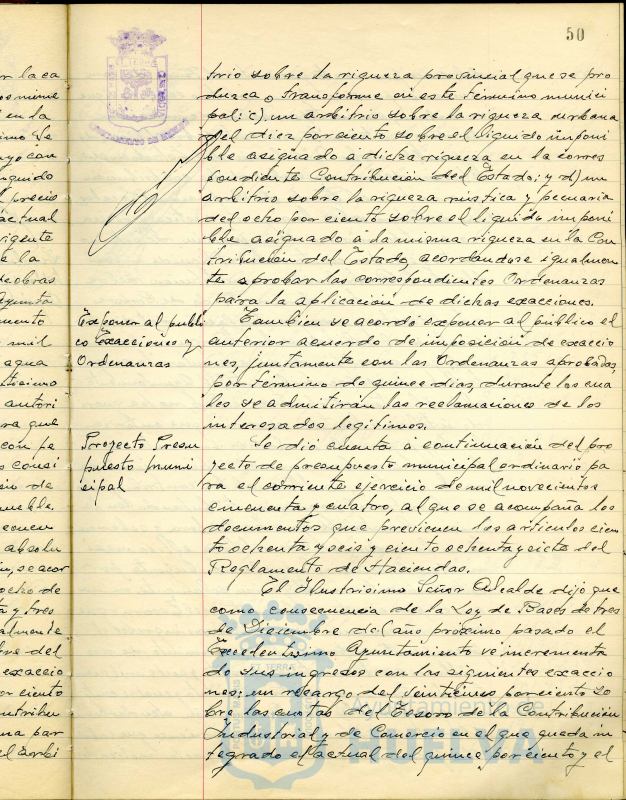 50
trio sobre la riqueza provincial que se pro
duzca o transforme en este término munici
pal; c) un arbitrio sobre la riqueza urbana
del diez por ciento sobre el líquido imponi
ble asignado á dicha riqueza en la corres
pondiente Contribución del Estado; y d) un
arbitrio sobre la riqueza rústica y pecuaria
del ocho por ciento sobre el líquido imponi
ble asignado á la misma riqueza en la Con
tribución del Estado, acordandose igualmen
te aprobar las correspondientes Ordenanzas
para la aplicación de dichas exacciones.
Exponer al públi
co Exacciones y
Ordenanzas
Tambien se acordó exponer al público el
anterior acuerdo de imposición de exaccio
nes, juntamente con las Ordenanzas aprobadas,
por término de quince dias, durante los cua
les se admitirán las reclamaciones de los
interesados legitimos.
Proyecto Presu
puesto muni
cipal
Se dió cuenta á continuación del pro
yecto de presupuesto municipal ordinario pa
ra el corriente ejercicio de mil novecientos
cincuenta y cuatro, al que se acompaña los
documentos que previenen los articulos cien
to ochenta y seis y ciento ochenta y siete del
Reglamento de Haciendas.
El Ilustrisimo Señor Alcalde dijo que
como consecuencia de la Ley de Bases de tres
de Diciembre del año próximo pasado el
Excelentisimo Ayuntamiento ve incrementa
do sus ingresos con las siguientes exaccio
nes: un recargo del veinticinco por ciento so
bre las cuotas del Tesoro de la Contribución
Industrial y de Comercio en el que queda in
tegrado el actual del quince por ciento y el
Ayuntamiento de
HUELVA